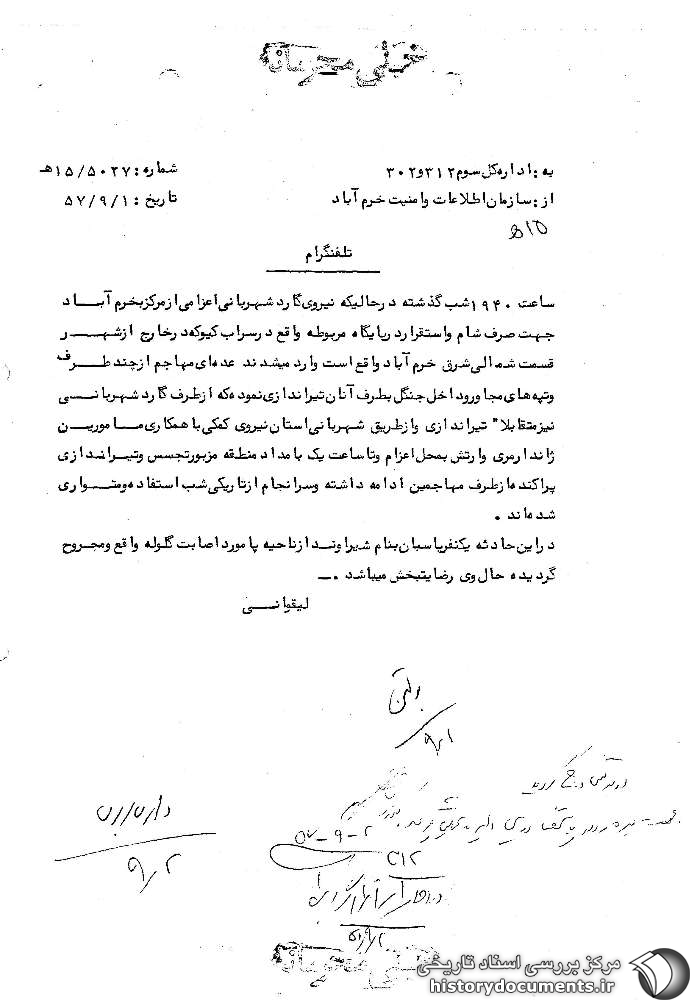 خیلی محرمانه
به : اداره کل سوم ۳۱۲ و ۳۰۲
شماره : ۱۵/۵۰۲۷ هـ
از : سازمان اطلاعات و امنیت خرم آباد
تاریخ : ۵۷/۹/۱
۱۵ هـ
تلفنگرام
ساعت ۱۹۴۰ شب گذشته در حالیکه نیروی گارد شهربانی اعزامی از مرکز بخرم آباد
جهت صرف شام و استقرار در پایگاه مربوطه واقع در سراب کیو که در خارج از شهر
قسمت شمالی شرق خرم آباد واقع است وارد میشدند عده‌ای مهاجم از چند طرف
و تپه های مجاور و داخل جنگل بطرف آنان تیراندازی نموده که از طرف گارد شهربانی
نیز متقابلا" تیراندازی و از طریق شهربانی استان نیروی کمکی با همکاری مامورین
ژاندارمری و ارتش بمحل اعزام و تا ساعت یک بامداد منطقه مزبور تجسس و تیراندازی
پراکنده از طرف مهاجمین ادامه داشته و سرانجام از تاریکی شب استفاده و متواری
شده اند .
در این حادثه یکنفر پاسبان بنام شیراوند از ناحیه پا مورد اصابت گلوله واقع و مجروح
گردیده حال وی رضایتبخش میباشد .ــ
لیقوانی
بولتن
۹/۱
در بولتن درج گردید
۵۷-۹-۲
۳۱۲
۹/۲
۵۷/۹/۲
خیلی محرمانه
مرکز بررسی اسناد تاریخی
historydocuments.ir